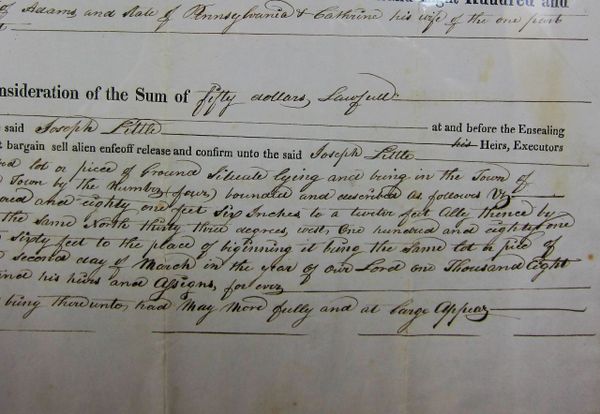 Eight Hundred and
of Adams and State of Pennsylvania & Cathrine his wife of the one part
nsideration of the Sum of fifty dollars Lawfull
said Joseph Little at and before the Ensealing
t bargain sell alien enfeoff release and confirm unto the said Joseph Little his Heirs, Executors
lot or piece of Ground Situate lying and being in the Town of
Town by the Number (four) bounded and described as follows Viz
and eighty one feet Six Inches to a twelve feet Ally thence by
the same North thirty three degrees, west, One hundred and eighty one
Sixty feet to the place of biginning it being the Same lot or piece of
Second day of March in the year of our Lord one Thousand Eight
his heirs and Assigns, for ever
being thereunto, had May More fully and at Large Appear